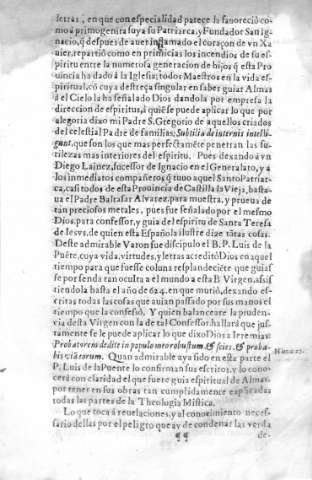 letras, en que con especialidad parece la fauoreciò co-
mo à primogenita suya su Patriarca, y Fundador San Ig-
nacio, q̃ despues de auer inflamado el coraçon de vn Xa
uier, repartiò como en primicias los incendios de su es-
piritu entre la numerosa generacion de hijos q̃ esta Pro
uincia ha dado à la Iglesia; todos Maestros en la vida es-
piritual, cõ cuya destreça singular en saber guiar Almas
à el Cielo la ha señalado Dios dandola por empresa la
direccion de espiritus, â quiẽ se puede aplicar lo que por
alegoria dixo mi Padre S. Gregorio de aquellos criados
del celestial Padre de familias; Subtilia de internis intelli-
gunt, que son los que mas perfectamẽte penetran las su-
tilezas mas interiores del espiritu. Pues dexando à vn
Diego Lainez, sucessor de Ignacio en el Generalato, y à
los inmediatos compañeros q̃ tuuo aquel Santo Patriar-
ca, casi todos de esta Prouincia de Castilla la Vieja, basta-
ua el Padre Baltasar Aluarez, para muestra, y prueua de
tan preciosos metales, pues fue señalado por el mesmo
Dios, para confessor, y guia del espiritu de Santa Teresa
de Iesvs, de quien esta Española ilustre dize tãtas cosas.
Deste admirable Varon fue discipulo el B. P. Luis de la
Puẽte, cuya vida, virtudes, y letras acreditò Dios en aquel
tiempo para que fuesse coluna resplandeciẽte que guias
se por senda tan oculta a el mundo a esta B Virgen, assis
tiendola hasta el año de 624. en que muriò, dexando es-
critas todas las cosas que auian passado por sus manos el
tiempo que la confesò, Y quien balanceare la pruden-
cia desta Virgen con la de tal Confessor, hallarà que jus-
tamente se le puede aplicar lo que dixo Dios a Ieremias:
Probatorem dedi te in populo meo robustum & scies, & proba-
bis viã eorum. Quan admirable aya sido en esta parte el
P. Luis de la Puente lo confirman sus escritos, y lo cono-
cerà con claridad el que fuere guia espiritual de Almas,
por tener en sus obras tan cumplidamente explicadas
todas las partes de la Theologia Mistica.
Lo que toca à reuelaciones, y al conocimiento neces-
sario dellas por el peligro que ay de condenar las verda
¶¶
de-